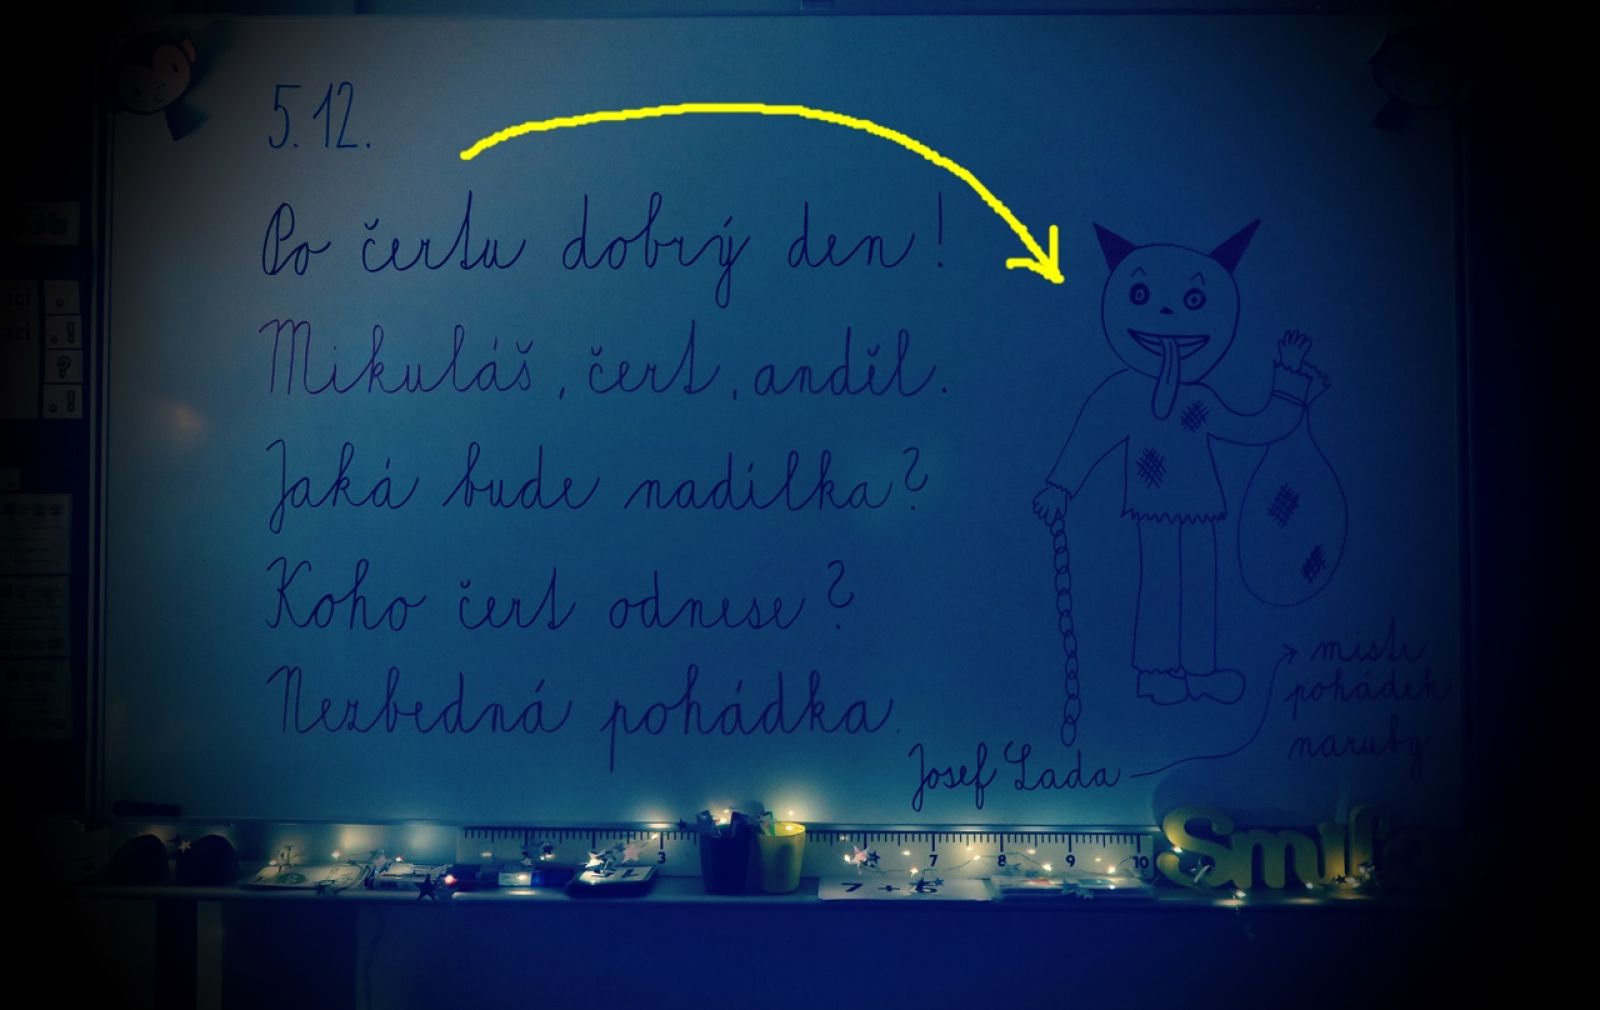 5.12.
Po čertu dobrý den!
Mikuláš, čert, anděl.
Jaká bude nadílka?
Koho čert odnese?
Nezbedná pohádka.
Josef Lada
mistr
pohádek
naruby
. !
?
. !
3 7 8 9 10
7 + 5
Smile